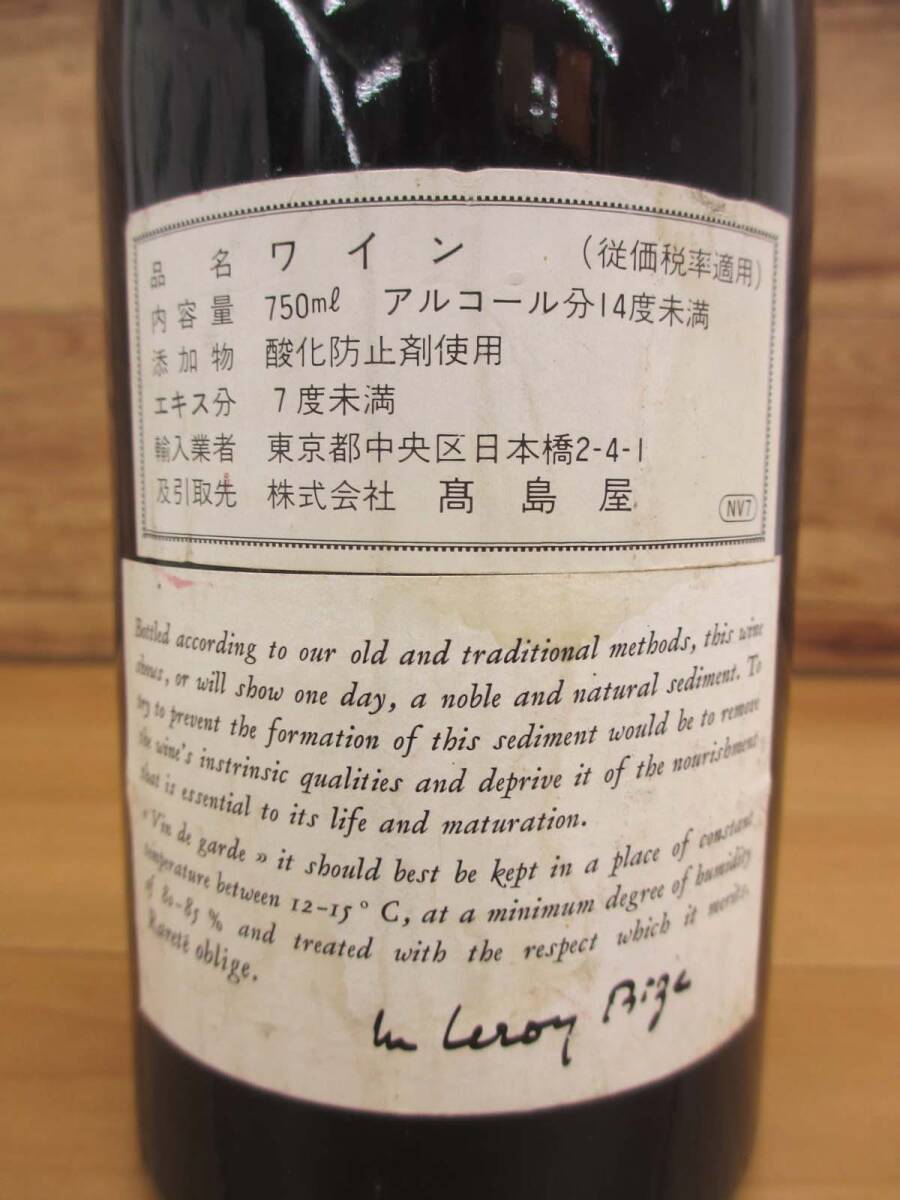 品名 ワイン (従価税率適用)
内容量 750ml アルコール分14度未満
添加物 酸化防止剤使用
エキス分 7度未満
輸入業者 東京都中央区日本橋2-4-1
及引取先 株式会社 髙島屋
NV7
Bottled according to our old and traditional methods, this wine
shows, or will show one day, a noble and natural sediment. To
try to prevent the formation of this sediment would be to remove
the wine's instrinsic qualities and deprive it of the nourishment
that is essential to its life and maturation.
« Vin de garde » it should best be kept in a place of constant
temperature between 12-15° C, at a minimum degree of humidity
of 80-85 % and treated with the respect which it merits.
Rareté oblige.
Leroy Bize